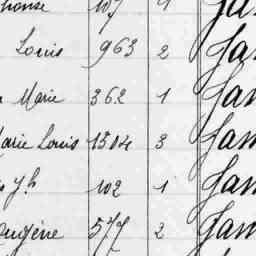 107 1
Louis 963 2 Jam
Marie 362 1 Jam
Marie Louis 1304 3 Jam
102 1 Jam
Eugène 577 2 Jam